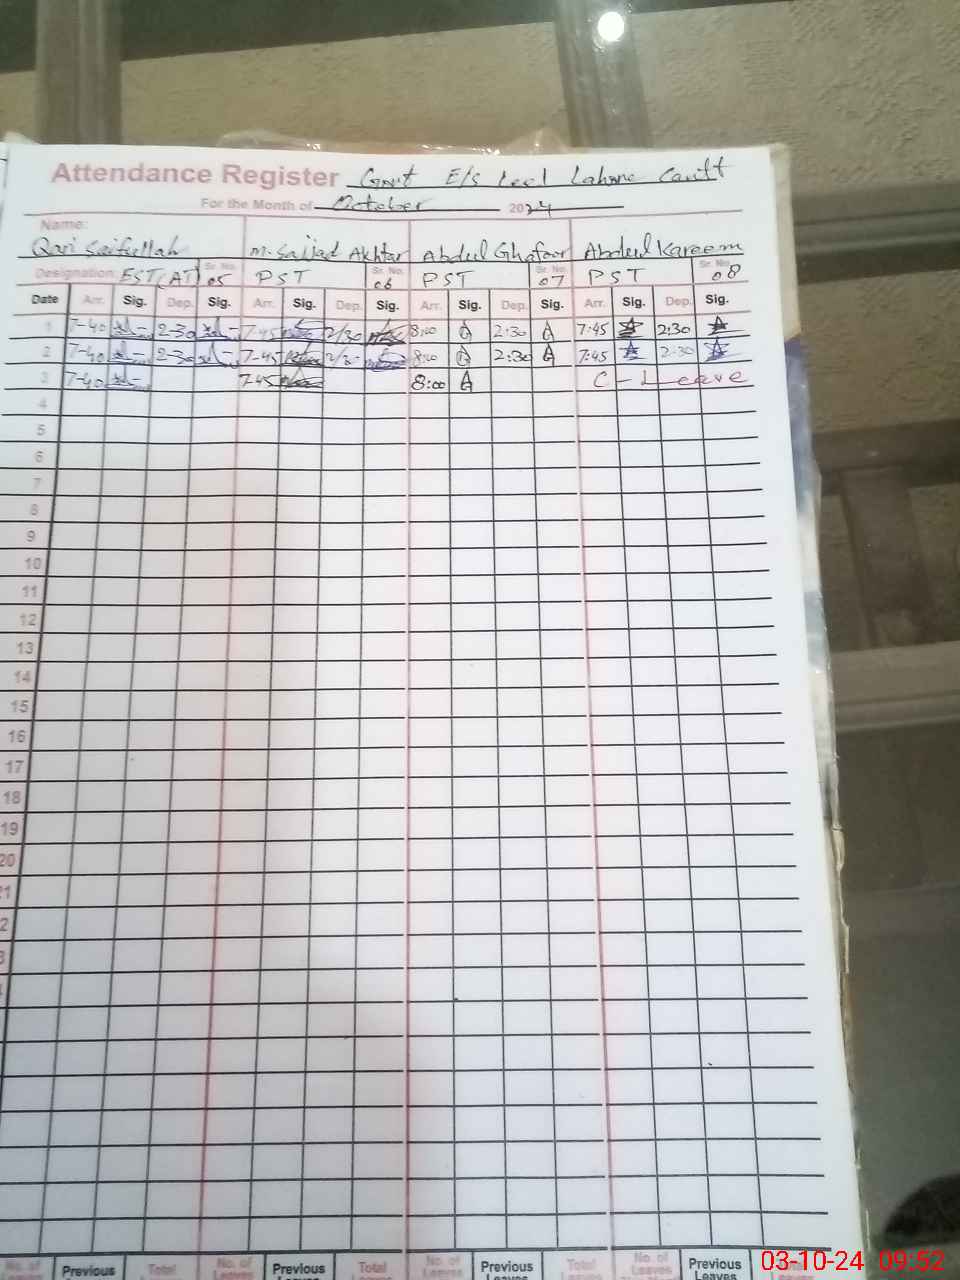 Attendance Register Govt E/S Lahore Cantt
For the Month of October 2024
Name:
Qari Saifullah M. Sajjad Akhtar Abdul Ghafoor Abdul Kareem
Designation: EST (AT) Sr. No. 05 PST Sr. No. 06 PST Sr. No. 07 PST Sr. No. 08
Date Arr. Sig. Dep. Sig. Arr. Sig. Dep. Sig. Arr. Sig. Dep. Sig. Arr. Sig. Dep. Sig.
1 7-40 2-30 7-45 2/30 8:00 2:30 7:45 2:30
2 7-40 2-30 7-45 2/30 8:00 2:30 7:45 2:30
3 7-40 7-45 8:00 C-Leave
4
5
6
7
8
9
10
11
12
13
14
15
16
17
18
19
20
No. of Leaves Previous Leaves Total No. of Leaves Previous Leaves Total Leaves No. of Leaves Previous Leaves Total Leaves No. of Leaves Previous Leaves Total Leaves
03-10-24 09:52